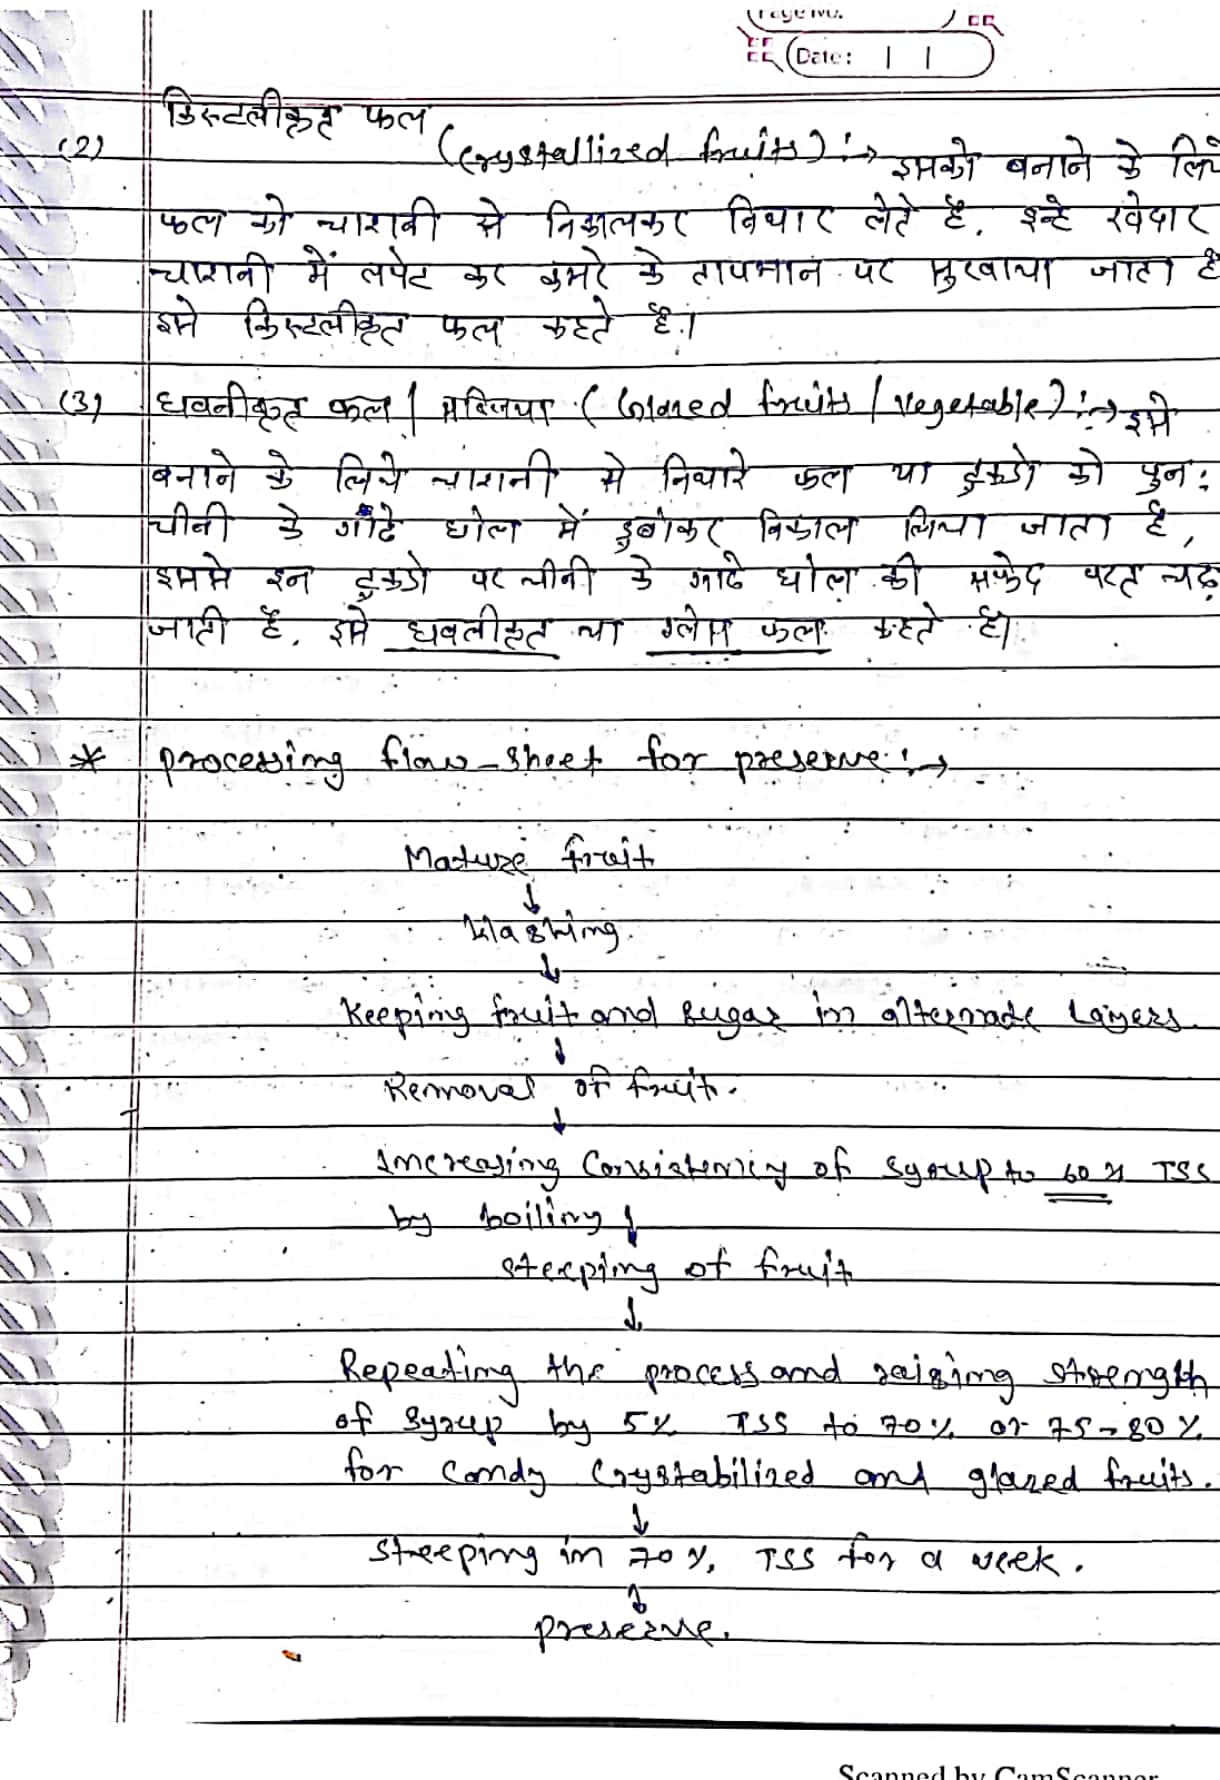 Page No.
Date: | |
क्रिस्टलीकृत फल
(2) (crystallized fruits) :→ इसको बनाने के लिये
फल को चाशनी से निकालकर निथार लेते है. इन्हे रवेदार
चाशनी में लपेट कर कमरे के तापमान पर सुखाया जाता है
इसे क्रिस्टलीकृत फल कहते है।
(3) धवलीकृत फल / सब्जियां (Glazed fruits / vegetable) :→ इसे
बनाने के लिये चाशनी से निथारे फल या टुकडो को पुन:
चीनी के गाढे घोल में डुबोकर निकाल लिया जाता है,
इससे इन टुकडो पर चीनी के गाढे घोल की सफेद परत चढ़
जाती है. इसे धवलीकृत या ग्लेस फल कहते है।
* processing flow-sheet for preserve :→
Mature fruit
↓
Washing.
↓
Keeping fruit and sugar in alternate layers.
↓
Removal of fruit.
↓
Increasing Consistency of syrup to 60% TSS
by boiling ↓
steeping of fruit
↓
Repeating the process and raising strength
of syrup by 5% TSS to 70% or 75-80%
for candy crystabilized and glazed fruits.
↓
Steeping in 70%. TSS for a week.
↓
preserve.
Scanned by CamScanner